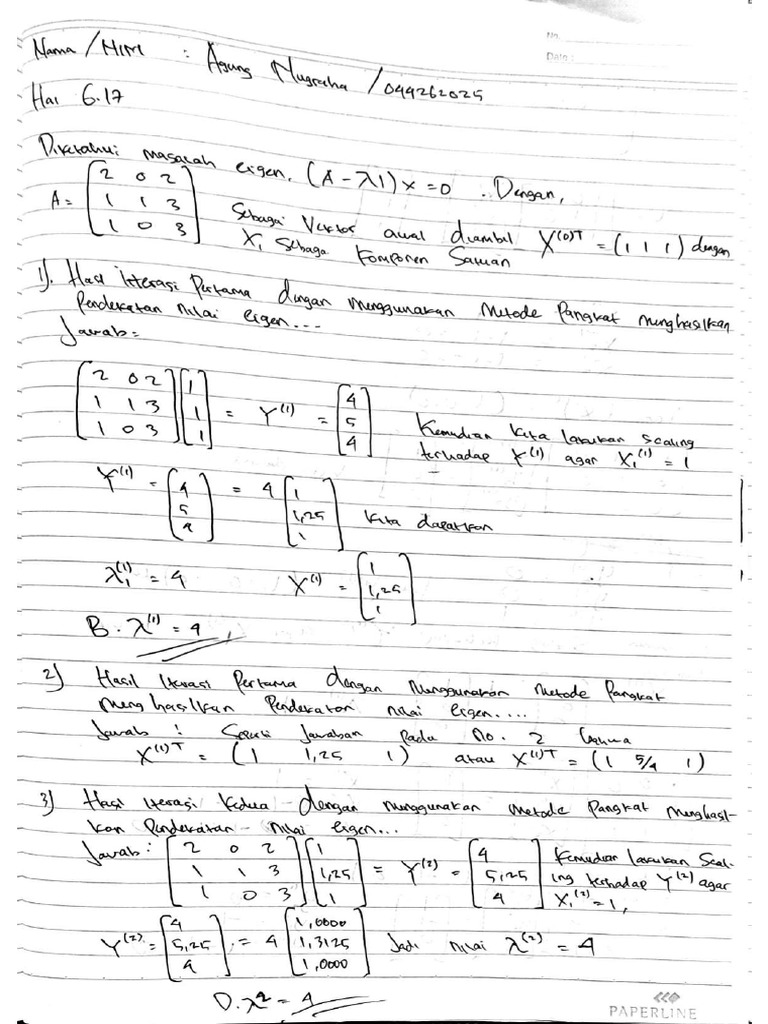 No.
Date:
Nama / NIM : Agung Nugraha / 044262025
Hal 6.17
Diketahui masalah eigen, (A - λI) x = 0 . Dengan,
A = [2 0 2; 1 1 3; 1 0 3] Sebagai Vektor awal diambil X^(0)T = (1 1 1) dengan
X₁ sebagai komponen satuan
1). Hasil Iterasi Pertama dengan menggunakan Metode Pangkat menghasilkan
Pendekatan nilai eigen...
Jawab =
[2 0 2; 1 1 3; 1 0 3] [1; 1; 1] = Y^(1) = [4; 5; 4] Kemudian kita lakukan scaling
terhadap Y^(1) agar X₁^(1) = 1
Y^(1) = [4; 5; 4] = 4 [1; 1,25; 1] kita dapatkan
λ₁^(1) = 4 X^(1) = [1; 1,25; 1]
B. λ^(1) = 4
2) Hasil Iterasi Pertama dengan Menggunakan Metode Pangkat
menghasilkan Pendekatan nilai eigen....
Jawab : Sesuai Jawaban Pada No. 2 bahwa
X^(1)T = (1 1,25 1) atau X^(1)T = (1 5/4 1)
3) Hasil Iterasi kedua dengan menggunakan metode Pangkat menghasil-
kan Pendekatan nilai eigen...
Jawab : [2 0 2; 1 1 3; 1 0 3] [1; 1,25; 1] = Y^(2) = [4; 5,25; 4] Kemudian lakukan Scal-
ing terhadap Y^(2) agar
X₁^(2) = 1,
Y^(2) = [4; 5,25; 4] = 4 [1,0000; 1,3125; 1,0000] Jadi nilai λ^(2) = 4
D. λ² = 4
PAPERLINE